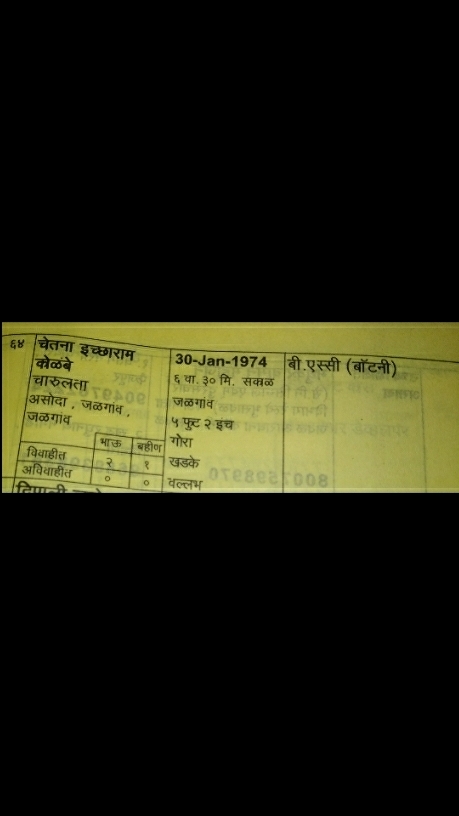 ६४ चेतना इच्छाराम
कोळंबे
चारुलता
असोदा , जळगांव ,
जळगांव
भाऊ बहीण
विवाहीत २ १
अविवाहीत ० ०
30-Jan-1974
६ वा. ३० मि. सकाळ
जळगांव
५ फुट २ इच
गोरा
खडके
वल्लभ
बी.एस्सी (बॉटनी)